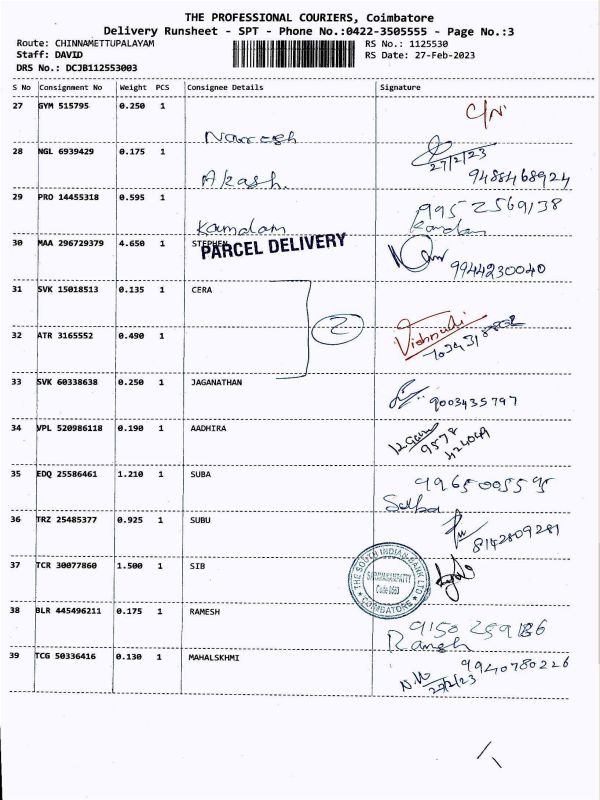 THE PROFESSIONAL COURIERS, Coimbatore
Delivery Runsheet - SPT - Phone No.:0422-3505555 - Page No.:3
Route: CHINNAMETTUPALAYAM RS No.: 1125530
Staff: DAVID RS Date: 27-Feb-2023
DRS No.: DCJB112553003
S No Consignment No Weight PCS Consignee Details Signature
27 GYM 515795 0.250 1 Naresh C/N
28 NGL 6939429 0.175 1 Akash. 27/2/23
9488468924
29 PRO 14455318 0.595 1 Kamdam 9952569138
30 MAA 296729379 4.650 1 STEPHEN
PARCEL DELIVERY
9944230040
31 SVK 15018513 0.135 1 CERA
2
32 ATR 3165552 0.490 1
33 SVK 60338638 0.250 1 JAGANATHAN 9003435797
34 VPL 520986118 0.190 1 AADHIRA
9578
424049
35 EDQ 25586461 1.210 1 SUBA 9965005595
Suba
36 TRZ 25485377 0.925 1 SUBU
8142809281
37 TCR 30077860 1.500 1 SIB
THE SOUTH INDIAN BANK LTD.
COIMBATORE
38 BLR 445496211 0.175 1 RAMESH 9150259186
Ramesh
39 TCG 50336416 0.130 1 MAHALSKHMI 9940780226
27/2/23